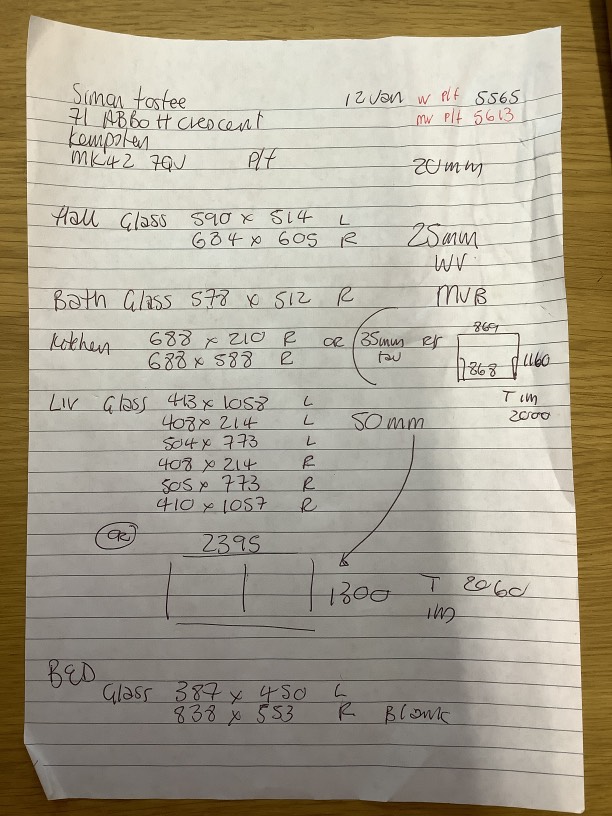 Simon Fostee
12 Van W P/f 5565
71 ABBott Crescent
mv P/f 5613
Kempston
MK42 7QU P/f
20mm
Hall Glass 590 x 514 L
634 x 605 R
25mm
WV
Bath Glass 578 x 512 R
MVB
Kitchen 688 x 210 R OR 35mm
688 x 588 R
869
868 1160
T 1m
2000
Liv Glass 413 x 1058 L
408 x 214 L 50mm
504 x 773 L
408 x 214 R
505 x 773 R
410 x 1057 R
OR
2395
1300 T 2060
1m
BED
Glass 387 x 450 L
838 x 553 R Blank